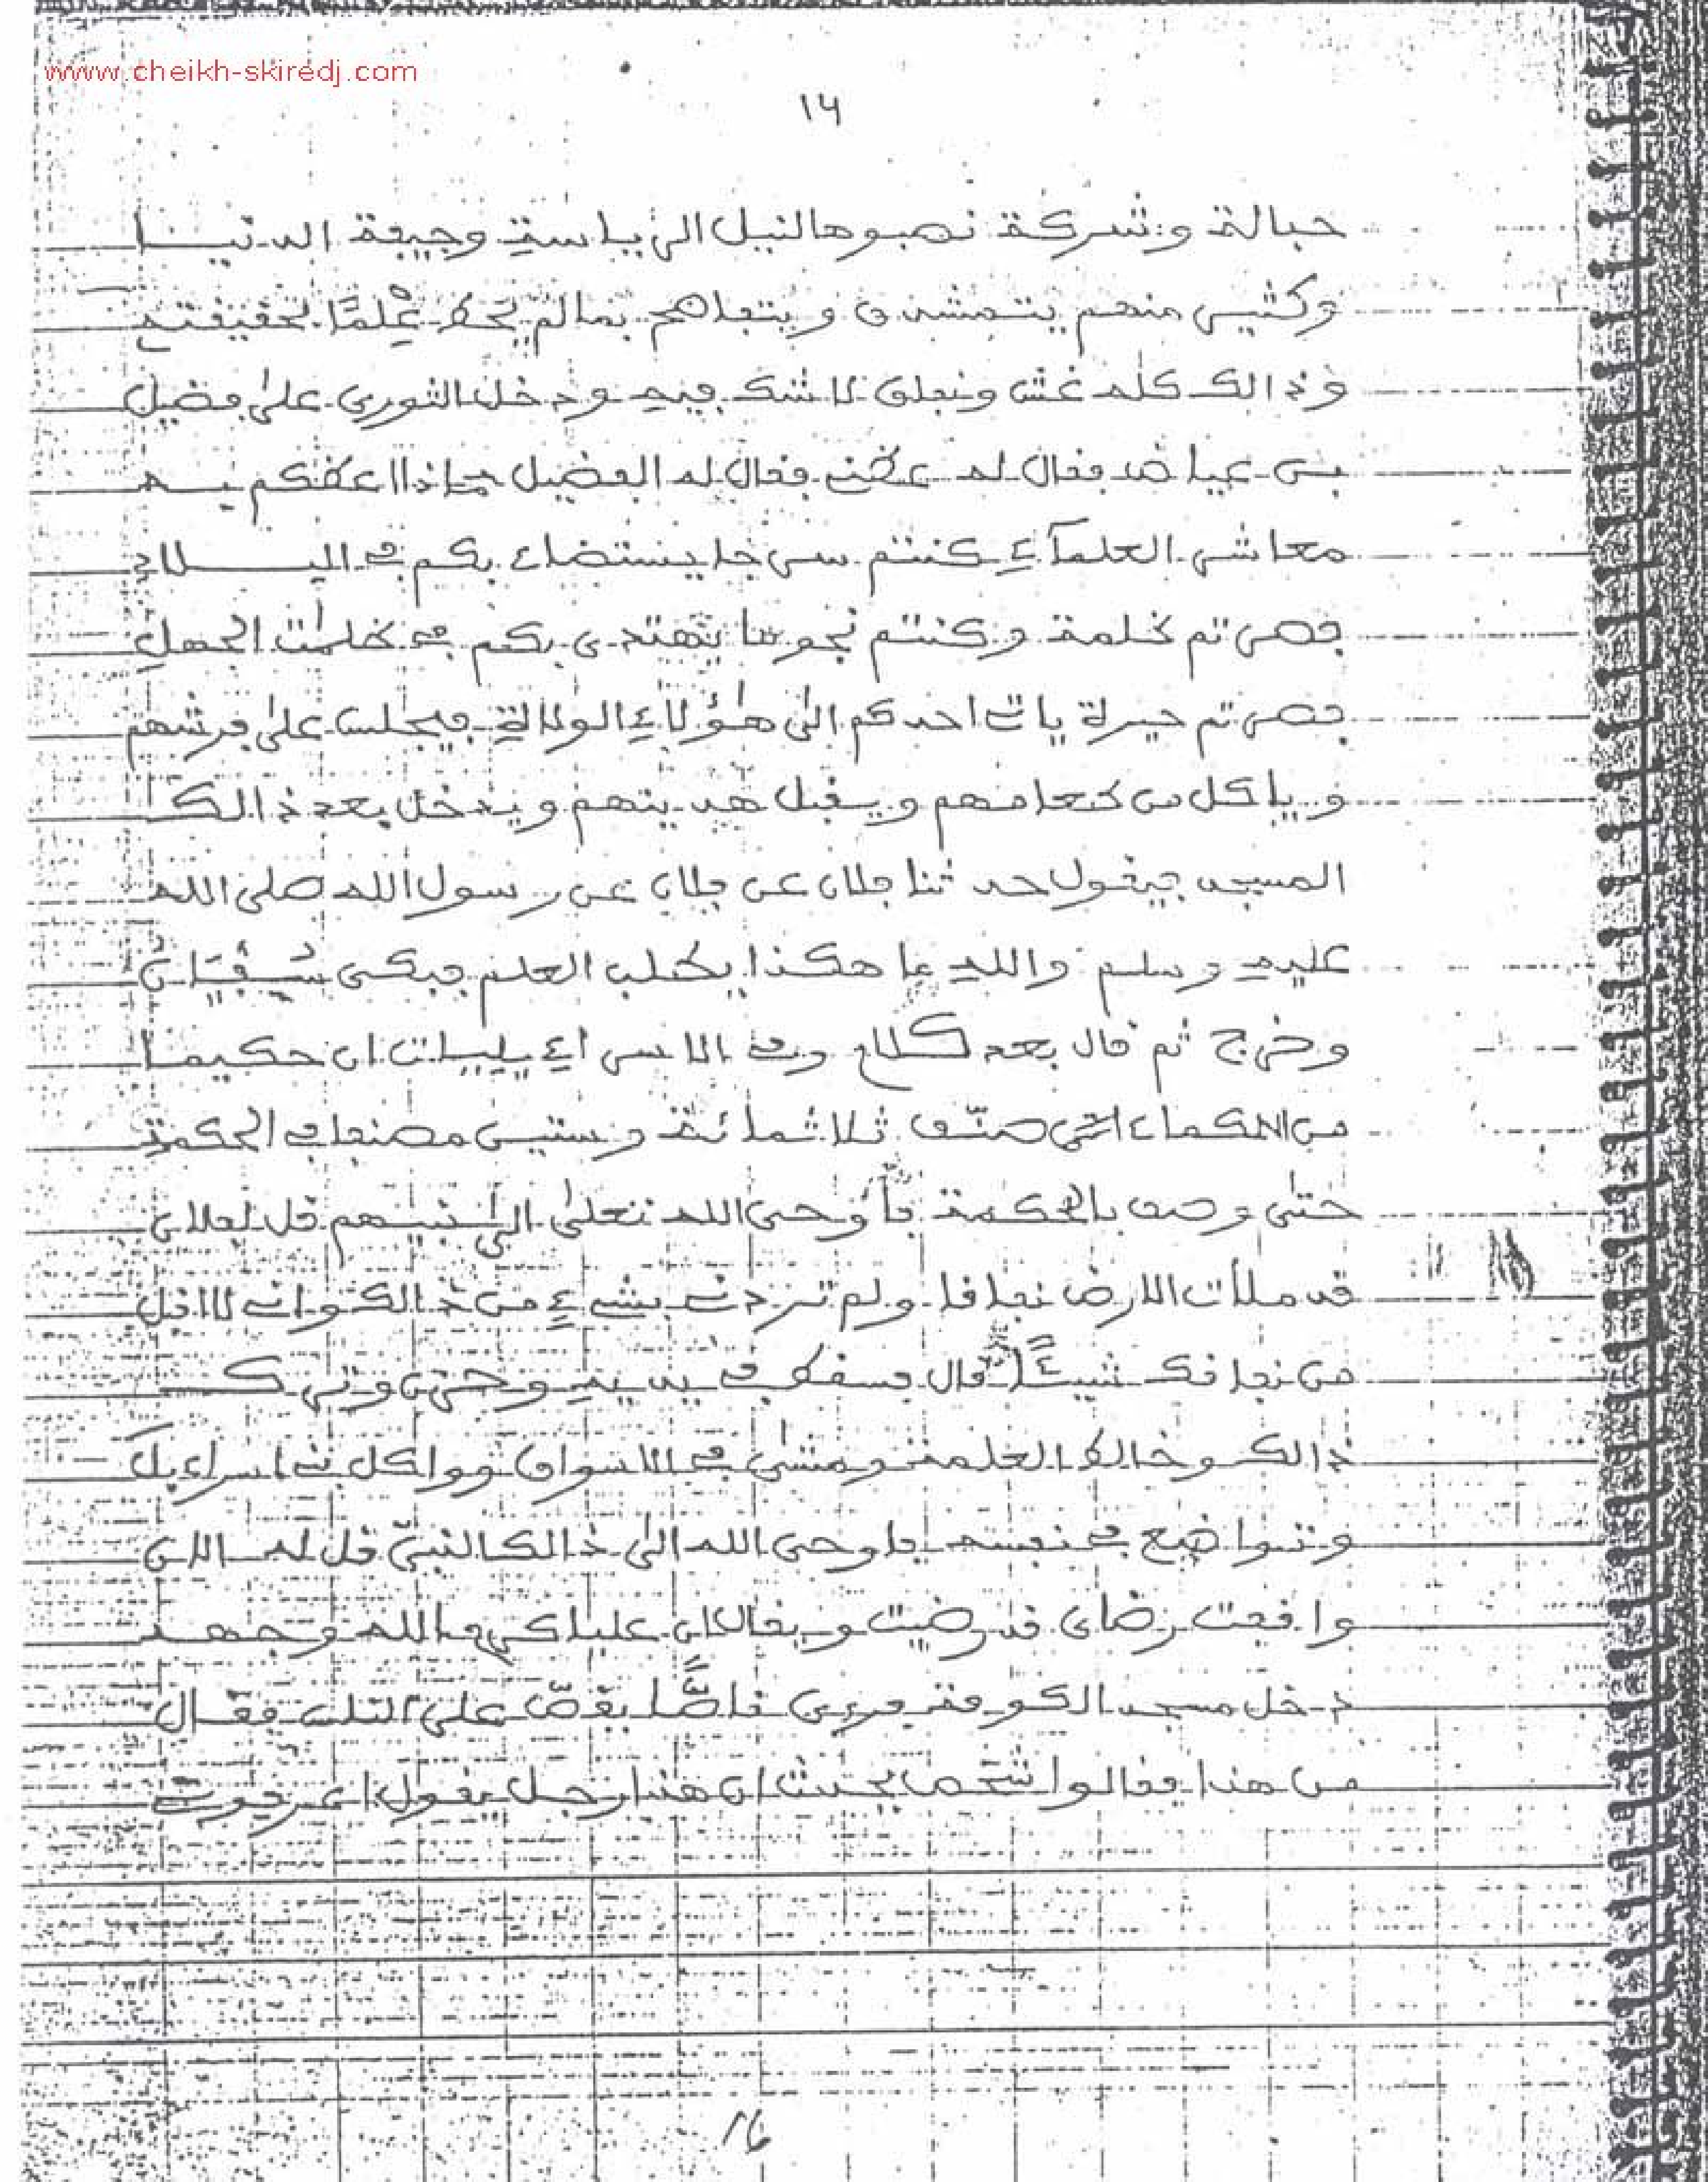 www.cheikh-skiredj.com
١٦
حبالة وشركة نصبوها لنيل الرياسة وجيفة الدنيا
وكثير منهم يتمشدق ويتفاهم بمالم يحط علما لحقيقته
وذالك كله غش ونفاق لا شك فيه ودخل الثورى على فضيل
بن عياض فقال له عظنى فقال له الفضيل بماذا اعظكم به
معاشر العلمآء كنتم سرجا يستضاء بكم في البلاد
فصرتم ظلمة وكنتم نجوما يهتدى بكم في ظلمات الجهل
فصرتم حيرة ياتى احدكم الى هؤلاء الولاة فيجلس على فرشهم
وياكل من طعامهم ويقبل هديتهم ويدخل بعد ذالك
المسجد فيقول حدثنا فلان عن فلان عن رسول الله صلى الله
عليه وسلم والله ما هكذا يطلب العلم فبكى سفيان
وخرج ثم قال بعد كلام وفى الاسراءيليات ان حكيما
من الحكماء صنّف ثلاثمائة وستين مصنفا في الحكمة
حتى وصف بالحكمة فأوحى الله تعلى الى نبيهم قل لفلان
قد ملأت الارض نفاقا ولم تردنى بشىء من ذالك وانى لا اقبل
من نفاقك شيئًا قال فسقط في يديه وحزن وترك
ذالك وخالط العامة ومشى في الاسواق وواكل بنى اسراءيل
وتواضع في نفسه فاوحى الله الى ذالك النبىّ قل له الان
وافقت رضاى قد رضيت ويقال ان عليا كرم الله وجهه
دخل مسجد الكوفة فرءى قاصًّا يقصّ على الناس فقال
من هذا فقالوا شخص يحدث ان هذا رجل يقول اعرفونى
16